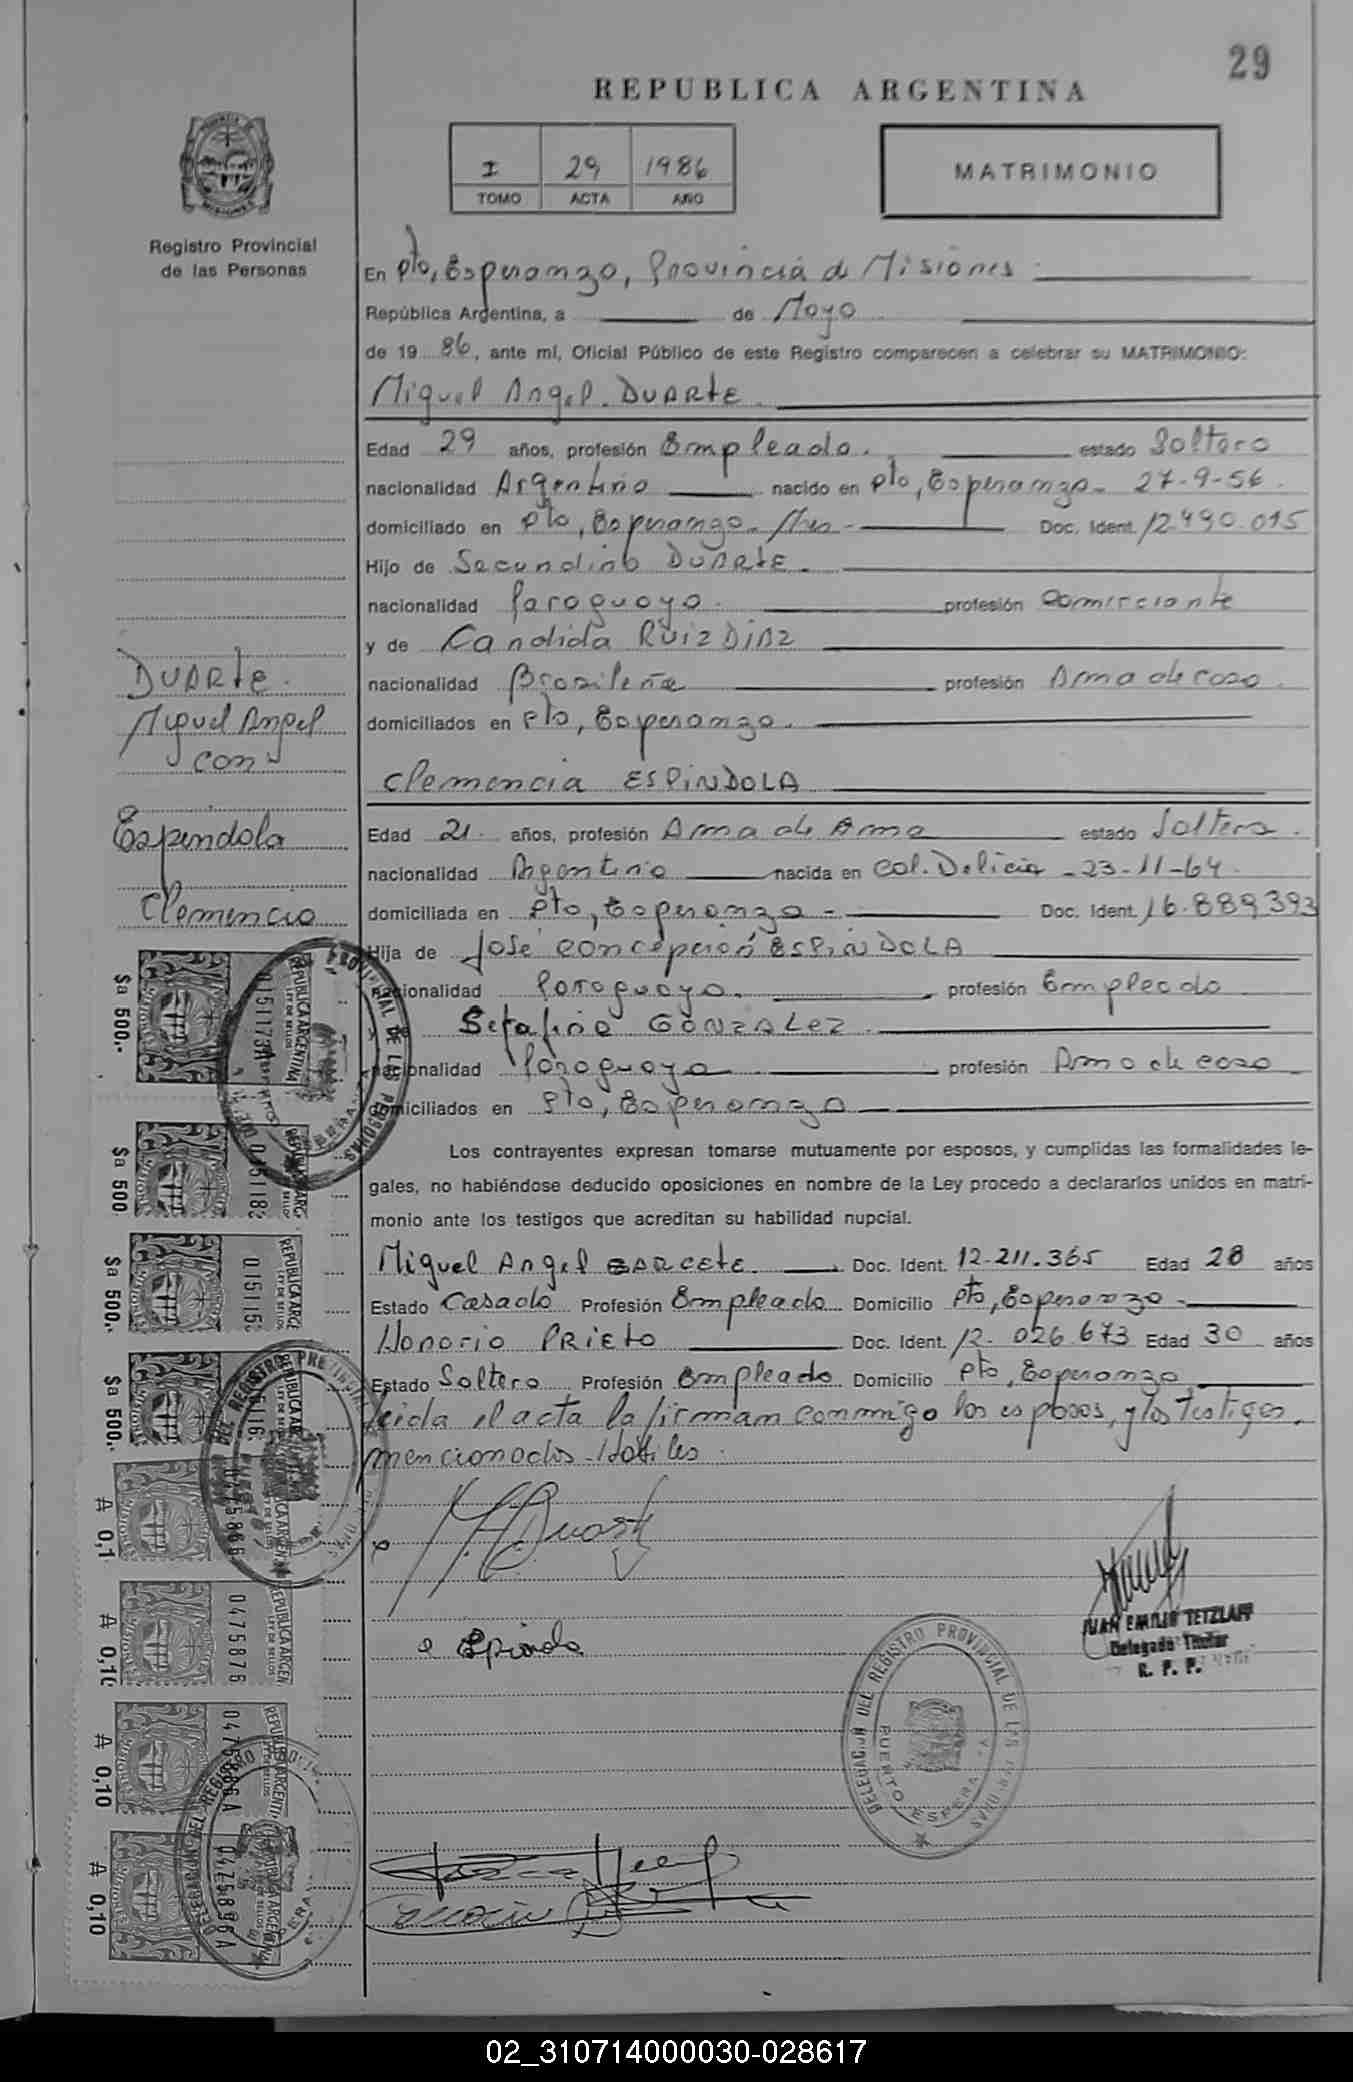 29
REPUBLICA ARGENTINA
I 29 1986
TOMO ACTA AÑO
MATRIMONIO
Registro Provincial
de las Personas
En Pto, Esperanza, Provincia de Misiones
República Argentina, a de Mayo
de 19 86, ante mí, Oficial Público de este Registro comparecen a celebrar su MATRIMONIO:
Miguel Angel DUARTE
Edad 29 años, profesión Empleado. estado Soltero
nacionalidad Argentino nacido en Pto, Esperanza - 27-9-56.
domiciliado en Pto, Esperanza - Mnes - Doc. Ident. 12.490.015
Hijo de Secundino DUARTE.
nacionalidad Paraguaya. profesión Comerciante
y de Candida RUIZ DIAZ
nacionalidad Brasileña profesión Ama de casa.
domiciliados en Pto, Esperanza.
Clemencia ESPINDOLA
Edad 21. años, profesión Ama de Ama estado Soltera.
nacionalidad Argentina nacida en Col. Delicia - 23-11-64.
domiciliada en Pto, Esperanza - Doc. Ident. 16.889.393
Hija de José Concepción ESPINDOLA
nacionalidad Paraguaya. profesión Empleado
Serafina GONZALEZ.
nacionalidad Paraguaya profesión Ama de casa
domiciliados en Pto, Esperanza
Los contrayentes expresan tomarse mutuamente por esposos, y cumplidas las formalidades le-
gales, no habiéndose deducido oposiciones en nombre de la Ley procedo a declararlos unidos en matri-
monio ante los testigos que acreditan su habilidad nupcial.
Miguel Angel BARCETE. Doc. Ident. 12.211.365 Edad 28 años
Estado Casado Profesión Empleado Domicilio Pto, Esperanza.
Honorio PRIETO Doc. Ident. 12.026.673 Edad 30 años
Estado Soltero Profesión Empleado Domicilio Pto, Esperanza
Leida el acta la firman conmigo los esposos, y los testigos,
mencionados
DUARTE.
Miguel Angel
con
Espindola
Clemencia
$a 500.-
REPUBLICA ARGENTINA
LEY DE SELLOS
$a 500
$a 500.-
$a 500.-
A 0,1
A 0,10
0475876
A 0,10
0475886A
A 0,10
0475896A
M A Duarte
JUAN EMILIO TETZLAFF
Delegado Titular
R. P. P.
DELEGACION DEL REGISTRO PROVINCIAL DE LAS PERSONAS
PUERTO ESPERANZA
02_310714000030-028617